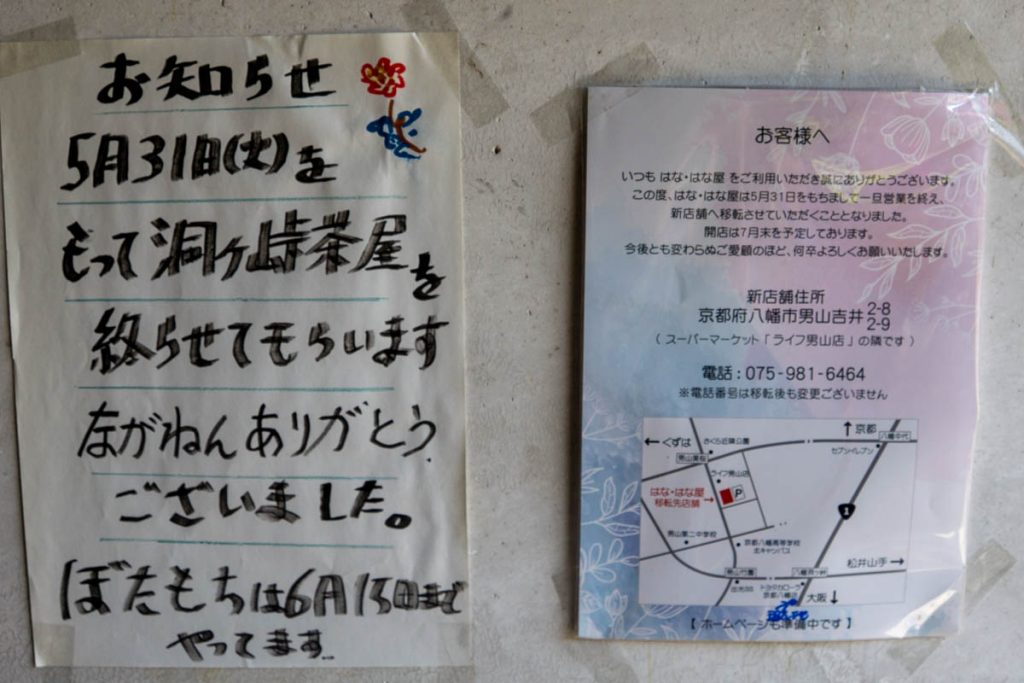 お知らせ
5月31日(火)を
もって洞ヶ峠茶屋を
終らせてもらいます
ながねんありがとう
ございました。
ぼたもちは6月15日まで
やってます。
お客様へ
いつも はな・はな屋 をご利用いただき誠にありがとうございます。
この度、はな・はな屋は5月31日をもちまして一旦営業を終え、
新店舗へ移転させていただくこととなりました。
開店は7月末を予定しております。
今後とも変わらぬご愛顧のほど、何卒よろしくお願いいたします。
新店舗住所
京都府八幡市男山吉井 2-8
2-9
( スーパーマーケット「 ライフ男山店 」の隣です )
電話 : 075-981-6464
※電話番号は移転後も変更ございません
↑京都
←くずは
さくら近隣公園
八幡中代
男山東桜
セブンイレブン
ライフ男山店
はな・はな屋
移転先店舗
P
1
男山第二中学校
京都八幡高等学校
北キャンパス
松井山手→
男山竹園
八幡洞ヶ峠
出光SS
トヨタカローラ
京都八幡店
大阪↓
【 ホームページも準備中です 】